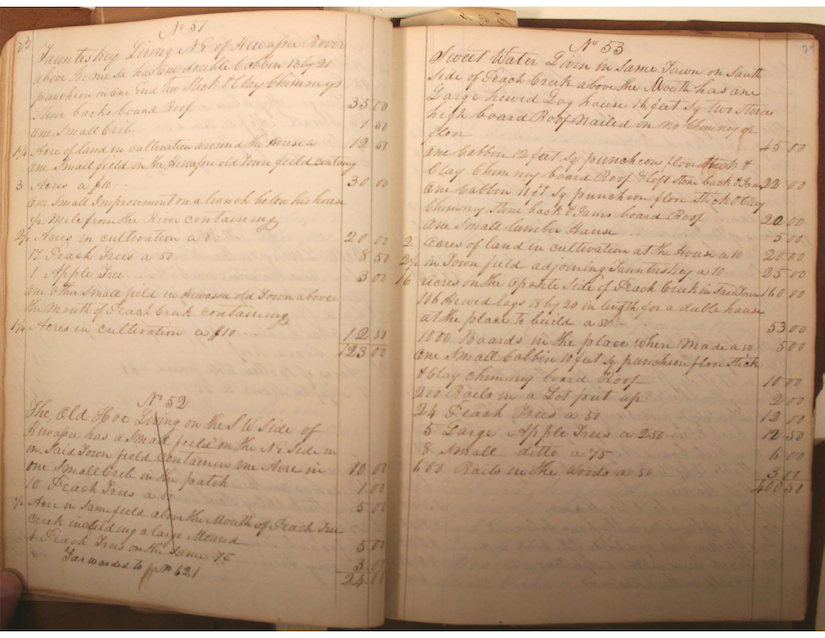 No 51
Taunteskey Living N.E. of Hiwassee River
above has one double Cabbin 18 by 21
puncheon in one End Stick & Clay Chimneys
Stone backs board Roof 35 00
one Small Crib 1 50
1 1/4 Acre of land in cultivation around the House a 12 50
one Small field in the Hiwassee old Town field containg
3 Acres a $10 .. 30 00
one Small Improvement on a branch below his house
1/2 Mile from the River containing
2 1/2 Acres in cultivation a 8 20 00
17 Peach Trees a 50 8 50
1 Apple Tree 3 00
one other Small field in Hiwassee old Town above
the Mouth of Peach Creek containing
1 1/4 Acres in cultivation a $10 .. 12 50
123 00
No 52
The Old Hoe Living on the S W Side of
Hiwassee has a Small field on the N E Side in
in Said Town field containes one Acre in 10 00
one Small Crib in the patch 1 00
10 Peach Trees a 50 5 00
1/2 Acre in Same field above the Mouth of Peach Tree
Creek including a large Mound 5 00
4 Peach Trees on the Same 75 3 00
Forwarded to No 621 24 00
No 53
Sweet Water Liven in Same Town on South
Side of Peach Creek above the Mouth has one
Large hewed Log house 16 feet Sq two Stories
high board Roof Nailed on no Chimney or
floor 45 00
one Cabbin 12 feet Sq puncheon floor Stick &
Clay Chimney board Roof & loft Stone back & Jams 22 00
one Cabbin 11 ft Sq puncheon floor Stick & Clay
Chimney Stone back & Jams board Roof 20 00
one Small lumber House 5 00
2 acres of land in cultivation at the House a 10 20 00
2 1/2 in Town field adjoining Taunteskey a 10 25 00
16 acres on the Oposite Side of Peach Creek in Said Town 160 00
106 Hewed logs 18 by 20 in length for a duble house
at the place to build a 50 53 00
1000 Boards in the place when Made a 50 5 00
one Small Cabbin 10 feet Sq puncheon floor Stick
& Clay Chimney board Roof 10 00
200 Rails in a Lot put up 2 00
24 Peach Trees a 50 12 00
5 Large Apple Trees a 2 50 12 50
8 Small ditto a 75 6 00
600 Rails in the Woods a 50 3 00
400 50